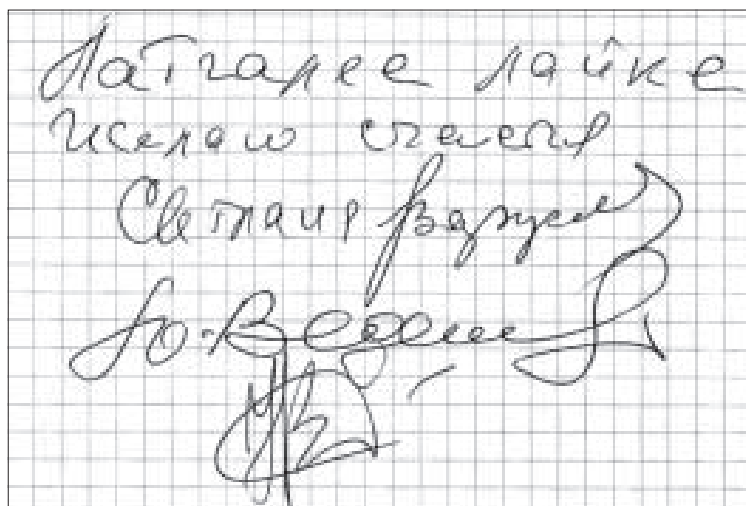 Латгалее лайке
желаю счастья
Светлана Варгузова
Ю. Веденеев